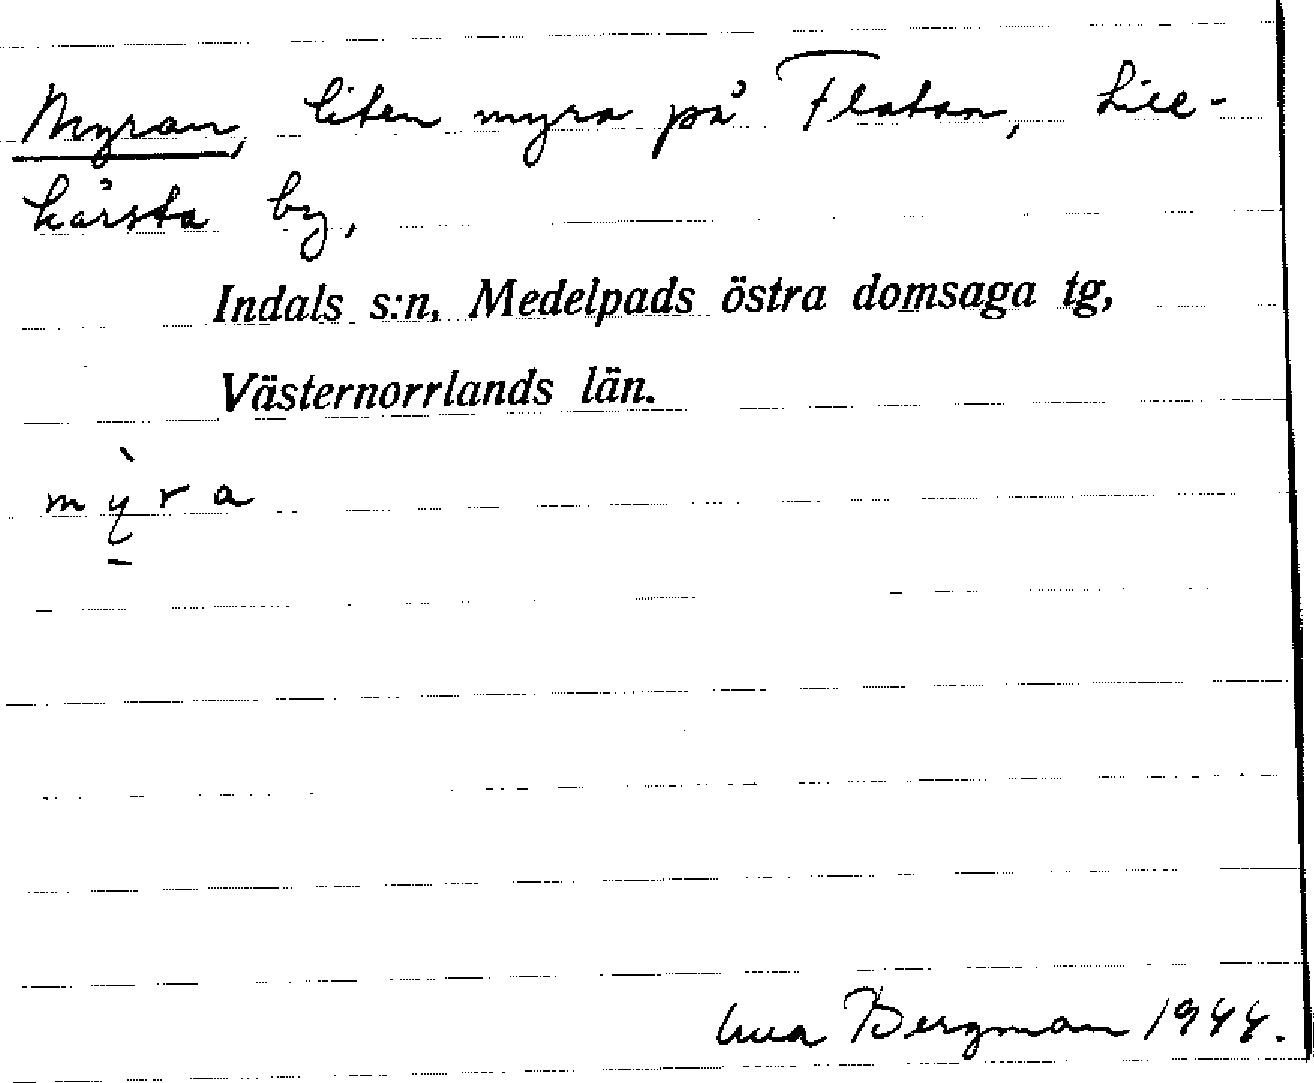 Myran, liten myra på Flatan, Lill-
hårsta by,
Indals s:n, Medelpads östra domsaga tg,
Västernorrlands län.
mỳ̱ra
Bergman 1944.